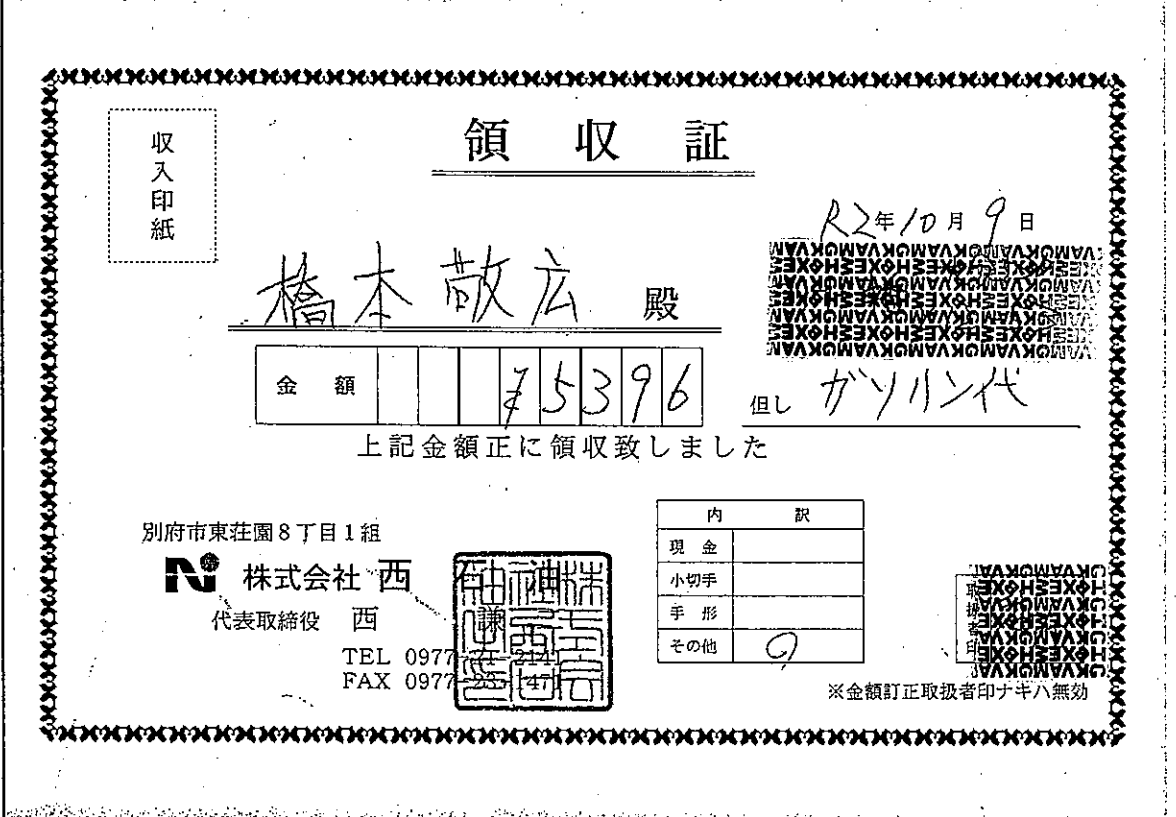 領収証
収入印紙
R2年10月9日
橋本敬広 殿
金額 ¥5396
但し ガソリン代
上記金額正に領収致しました
別府市東荘園8丁目1組
株式会社 西石油
代表取締役 西 謙
TEL 0977-21-2141
FAX 0977-23-1471
内訳
現金
小切手
手形
その他
取扱者印
※金額訂正取扱者印ナキハ無効